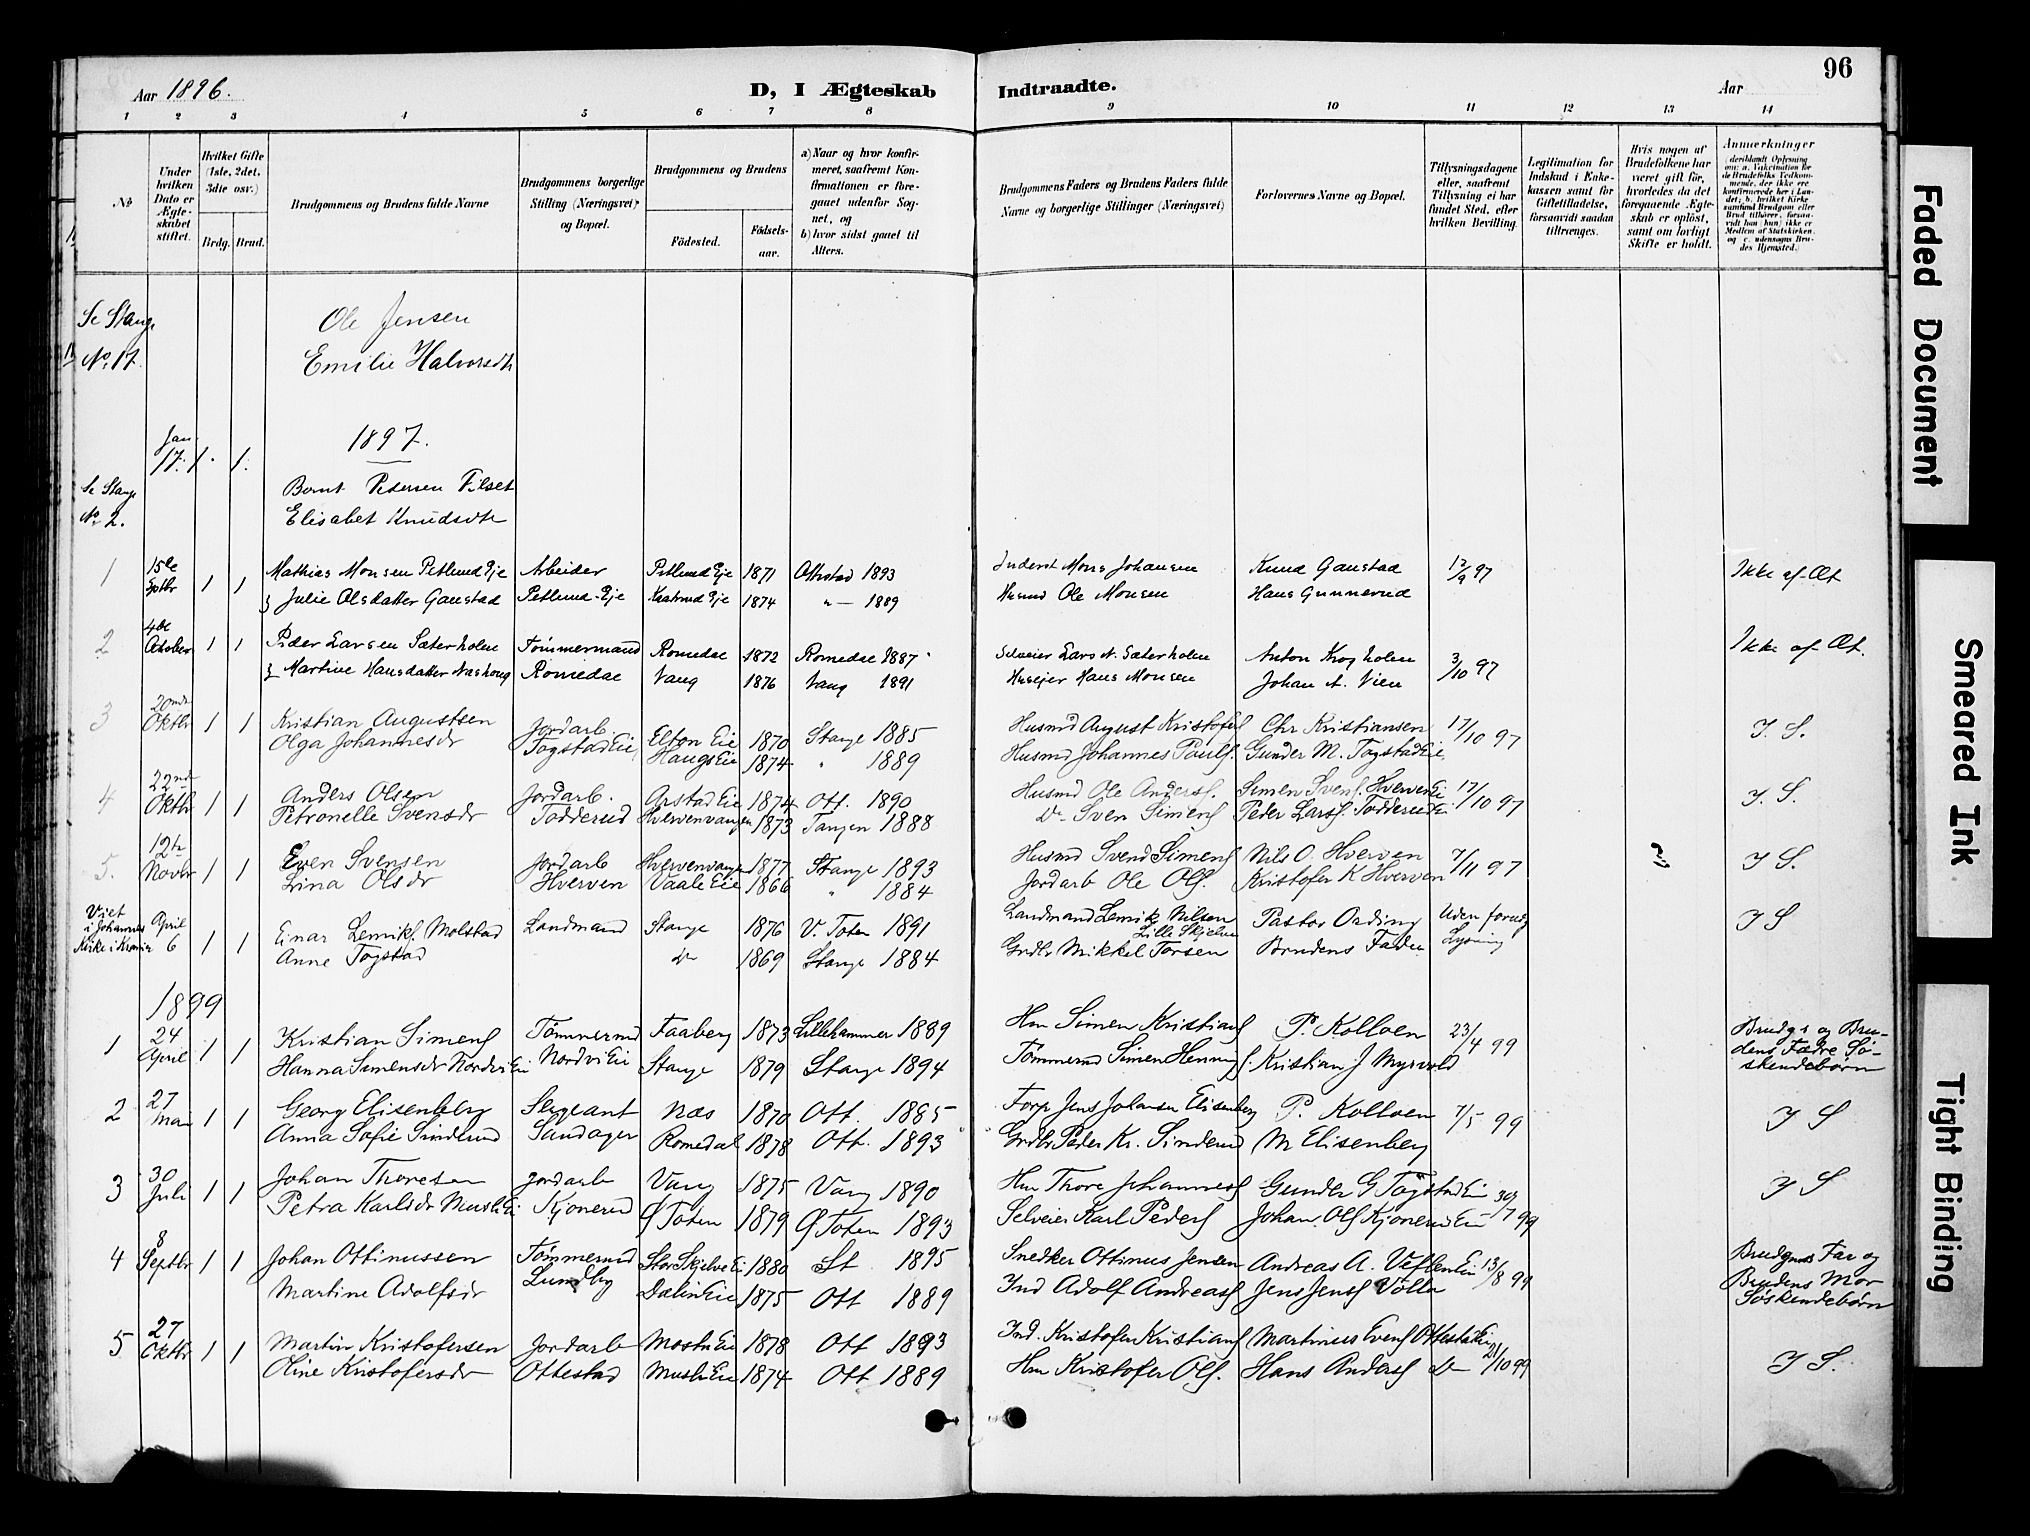 Aar 1896.
D, I Ægteskab Indtraadte.
Aar
96
1 2 3 4 5 6 7 8 9 10 11 12 13 14
No
Under hvilken Dato er Ægteskabet stiftet.
Hvilket Gifte (1ste, 2det, 3die osv.)
Brdg. Brud.
Brudgommens og Brudens fulde Navne
Brudgommens borgerlige Stilling (Næringsvei) og Bopæl.
Brudgommens og Brudens
Födested.
Födselsaar.
a) Naar og hvor konfirmeret, saafremt Konfirmationen er foregaaet udenfor Sognet, og
b) hvor sidst gaaet til Alters.
Brudgommens Faders og Brudens Faders fulde Navne og borgerlige Stillinger (Næringsvei)
Forlovernes Navne og Bopæl.
Tillysningsdagene eller, saafremt Tillysning ei har fundet Sted, efter hvilken Bevilling.
Legitimation for Indskud i Enkekassen samt for Giftetilladelse, forsaavidt saadan tiltrænges.
Hvis nogen af Brudefolkene har været gift för, hvorledes da det foregaaende Ægteskab er oplöst, samt om lovligt Skifte er holdt.
Anmærkninger
(deriblandt Oplysning om: a. Vakcination for de Brudefolks Vedkommende, der ikke ere konfirmerede her i Landet; b. hvilket Kirkesamfund Brudgom eller Brud tilhörer, forsaavidt han (hun) ikke er Medlem af Statskirken, og c. udensogns Brudes Hjemsted.)
Se Stange No. 17.
Ole Jensen
Emilie Halvorsdtr
1897.
Jan. 17. 1. 1.
Se Stange No. 2.
Bernt Pedersen Vilset
Elisabet Knudsdtr
1 15de Sptbr 1 1 Mathias Monsen Petlund Eje Arbeider Petlund Eje 1871 Ottestad 1893 Inderst Mons Johansen Knud Gaustad 12/9 97 Ikke af Æt
Julie Olsdatter Gaustad Petlund-Eje Eje 1874 " — 1889 Husmd Ole Monsen Hans Gunnerud
2 4de October 1 1 Peder Larsen Sæterholen Tømmermand Romedal 1872 Romedal 1887 Selveier Lars N. Sæterholen Anton Krogholen 3/10 97 Ikke af Æt.
Martine Hansdatter Nashoug Romedal Vang 1876 Vang 1891 Huseier Hans Monsen Johan A. Vien
3 20nde Oktbr 1 1 Kristian Augustsen Jordarb. Elton Eie 1870 Stange 1885 Husmd August Kristofers Chr Kristiansen 17/10 97 I. S.
Olga Johannesdr Togstad Eie Haugs Eie 1874 " 1889 Husmd Johannes Pauls. Gunder M. Togstad Eie
4 22nde Oktbr 1 1 Anders Olsen Jordarb. Arstad Eie 1874 Ott. 1890 Husmd Ole Anders. Simen Svens. Hverven Ei 17/10 97 I. S.
Petronelle Svensdr Todderud Hvervenvangen 1873 Tangen 1888 Do Sven Simens Peder Lars. Todderud Ei
5. 12te Novbr 1 1 Even Svensen Jordarb Hvervenvangen 1877 Stange 1893 Husmd Svend Simens Nils O. Hverven 7/11 97 I S.
Lina Olsdr Hverven Vaale Eie 1866 " 1884 Jordarb Ole Ols. Kristofer K Hverven
Viet i Johannes Kirke i Krania April 6 1 1 Einar Lemiks. Molstad Landmand Stange 1876 V. Toten 1891 Landmand Lemik Nilsen Lille Skjelve Pastor Ording Uden forudg Lysning I S
Anne Togstad Do 1869 Stange 1884 Grdbr Mikkel Torsen Brudens Fader
1899
1 24 April 1 1 Kristian Simens Tømmermd Faaberg 1873 Lillehammer 1889 Hm Simen Kristians P. Kolloen 23/4 99 Brudgs og Brudens Fædre Søskendebørn
Hanna Simensdr Nordvi Ei Nordvi Eie Stange 1879 Stange 1894 Tømmermd Simen Hennings. Kristian J Myrvold
2 27 Mai 1 1 Georg Elisenberg Sergeant Næs 1870 Ott. 1885 Forp Jens Johansen Elisenberg P. Kolloen 7/5 99 I S
Anna Sofie Sinderud Sandager Romedal 1878 Ott. 1893 Grdbr Peder Kr. Sinderud M Elisenberg
3 30 Juli 1 1 Johan Thoresen Jordarb Vang 1875 Vang 1890 Hm Thore Johannes Gunder G Togstad Ei 30/7 99 I S
Petra Karlsdr Musli Ei Kjonerud Ø Toten 1879 Ø Toten 1893 Selveier Karl Peders Johan. Ols Kjonerud Ei
4 8 Septbr 1 1 Johan Ottinussen Tømmermd Stor Skjelve Ei 1880 St 1895 Snedker Ottinus Jensen Andreas A. Veflen Ei 13/8 99 Brudgms Far og Brudens Mor Søskendebørn
Martine Adolfsdr Lundby Dælin Eie 1875 Ott 1889 Ind Adolf Andreas Jens Jens Volla
5 27 Oktbr 1 1 Martin Kristofersen Jordarb Mostu Eie 1878 Ott 1893 Ind. Kristofer Kristians Martinus Evens Ottestad Ei 21/10 99 I S.
Oline Kristofersdr Ottestad Musli Eie 1874 Ott 1889 Hm Kristofer Ols. Hans Anders Do
Faded Document
Smeared Ink
Tight Binding